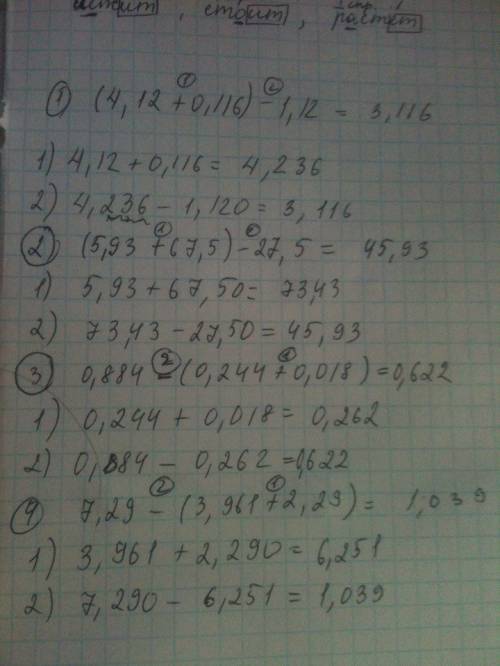 стоит, растет
① (4,12 + 0,116) - 1,12 = 3,116
1) 4,12 + 0,116 = 4,236
2) 4,236 - 1,120 = 3,116
② (5,93 + 67,5) - 27,5 = 45,93
1) 5,93 + 67,50 = 73,43
2) 73,43 - 27,50 = 45,93
③ 0,884 - (0,244 + 0,018) = 0,622
1) 0,244 + 0,018 = 0,262
2) 0,884 - 0,262 = 0,622
④ 7,29 - (3,961 + 2,29) = 1,039
1) 3,961 + 2,290 = 6,251
2) 7,290 - 6,251 = 1,039